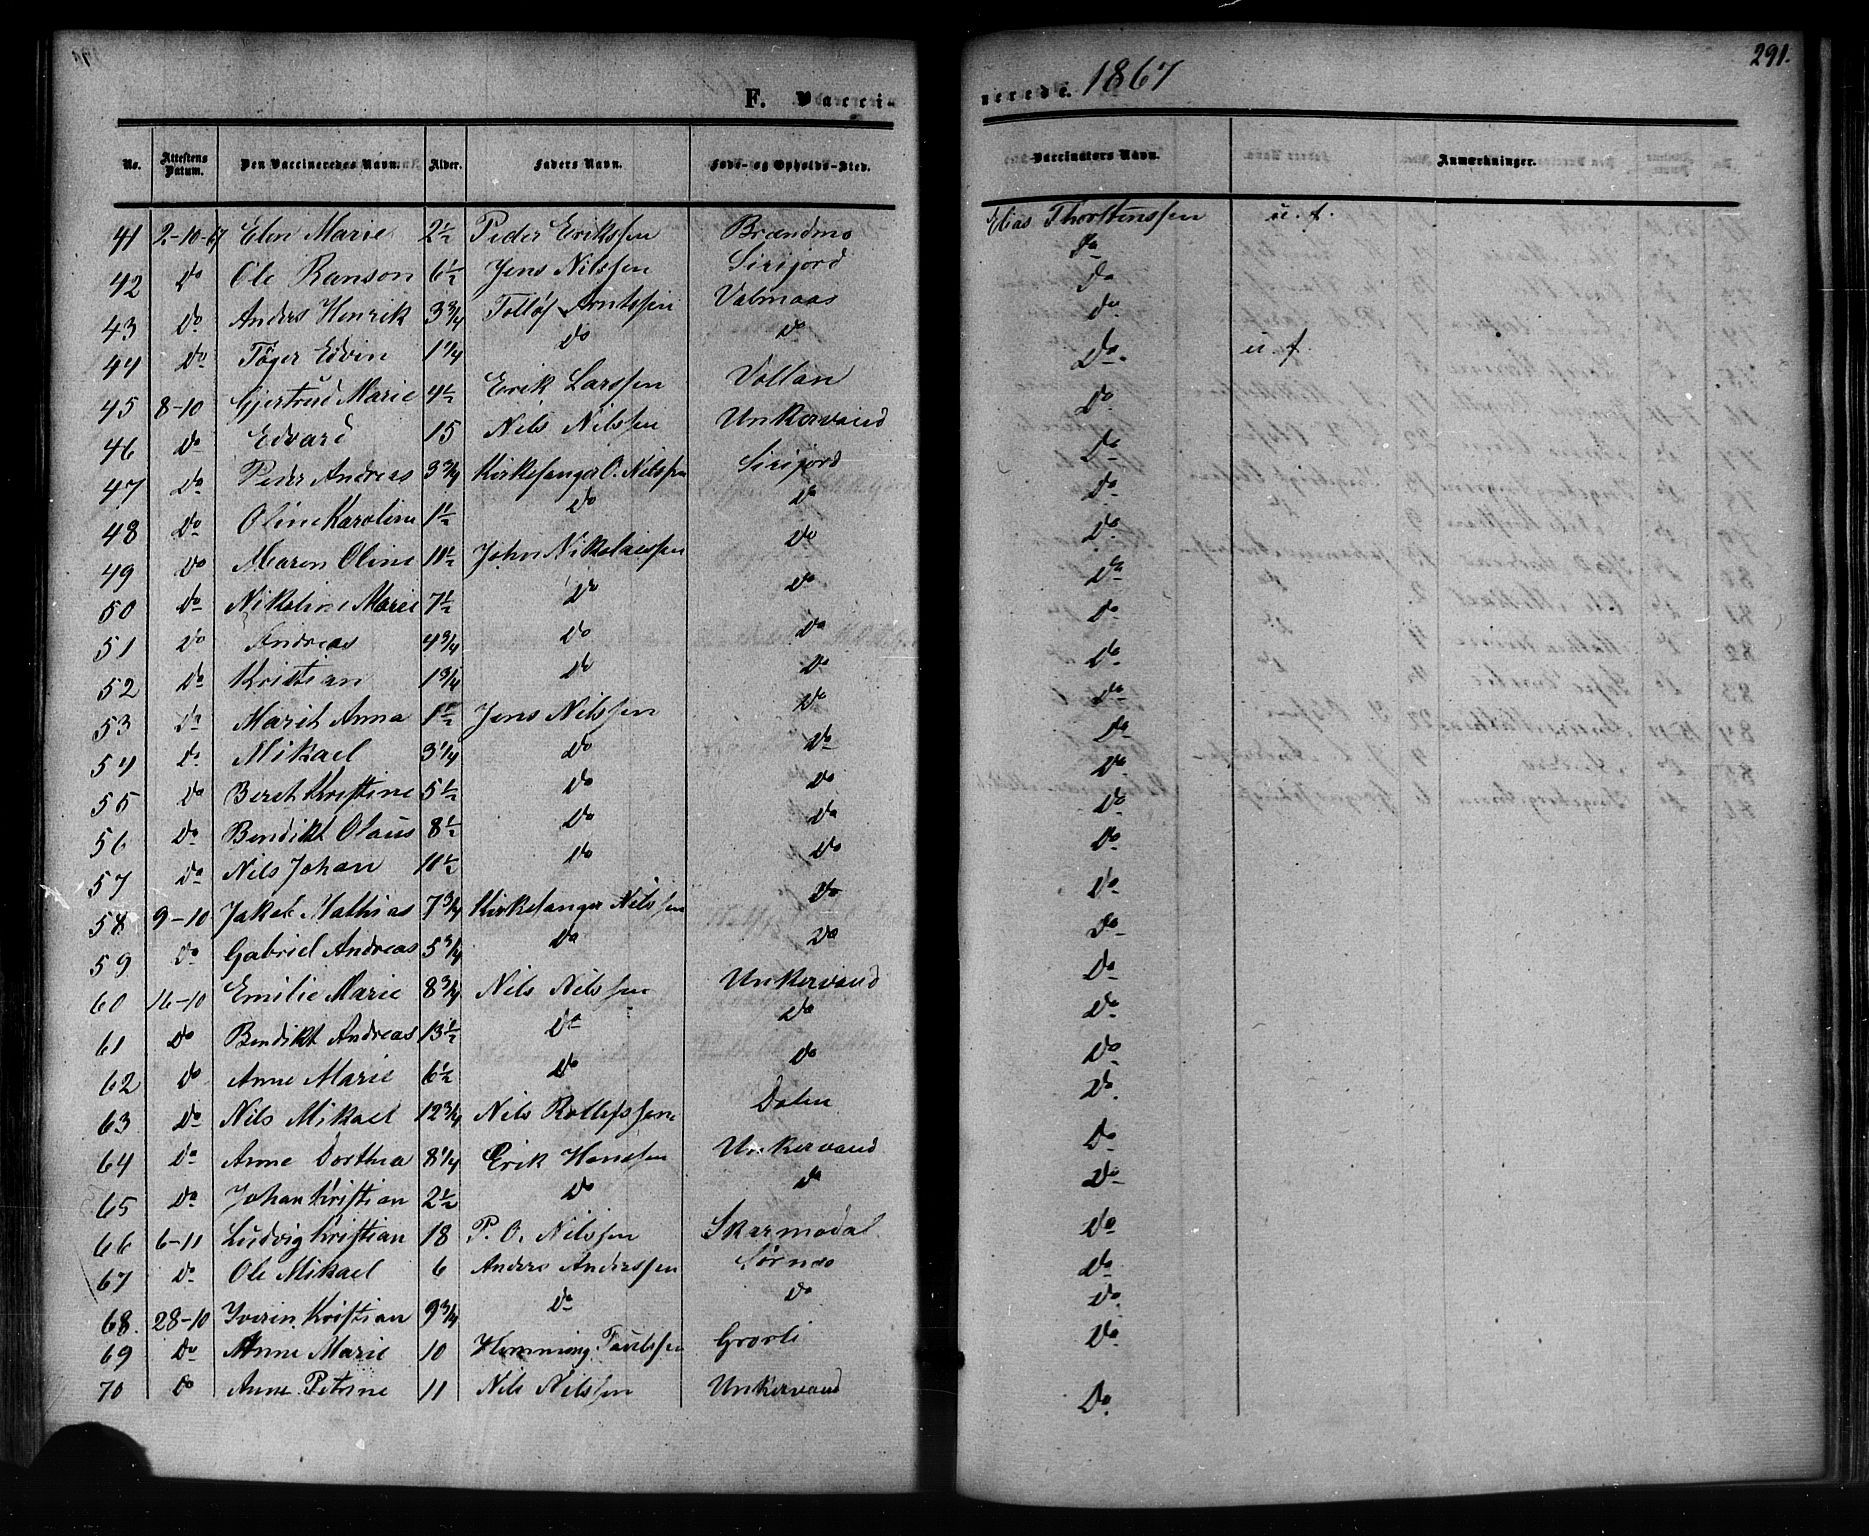 F. Vacci-
nerede. 1867
291.
No. Attestens Datum. Den Vaccineredes Navn. Alder. Faders Navn. Føde- og Opholds-Sted. Vaccinators Navn. Anmærkninger.
41 2-10-67 Elen Marie 2½ Peder Erikssen Brændmo Elias Thorstenssen u. f.
42 Do Ole Ranson 6½ Jens Nilssen Sirijord Do
43 Do Anders Henrik 3¾ Tollöf Arntssen Valmaas Do
44 Do Töger Edvin 1¼ Do Do Do
45 8-10 Gjertrud Marie 4½ Erik Larssen Vollan Do u. f.
46 Do Edvard 15 Nils Nilssen Unkervand Do
47 Do Peder Andreas 3¾ Kirkesanger O. Nilssen Sirijord Do
48 Do Oline Karoline 1½ Do Do Do
49 Do Maren Oline 11½ John Nikolaissen Do Do
50 Do Nikoline Marie 7½ Do Do Do
51 Do Andreas 4¾ Do Do Do
52 Do Kristian 1¾ Do Do Do
53 Do Marit Anna 1½ Jens Nilssen Do Do
54 Do Mikael 3¼ Do Do Do
55 Do Beret Kristine 5½ Do Do Do
56 Do Bendikt Olaus 8½ Do Do Do
57 Do Nils Johan 11½ Do Do Do
58 9-10 Jakob Mathias 7¾ Kirkesanger Nilssen Do Do
59 Do Gabriel Andreas 5¾ Do Do Do
60 16-10 Emilie Marie 8¾ Nils Nilssen Unkervand Do
61 Do Bendikt Andreas 13½ Do Do Do
62 Do Anne Marie 6½ Do Do Do
63 Do Nils Mikael 12¾ Nils Rollefssen Dalen Do
64 Do Anne Dorthea 8¼ Erik Hanssen Unkervand Do
65 Do Johan Kristian 2½ Do Do Do
66 6-11 Ludvig Kristian 18 P. O. Nilssen Skarmodal Do
67 Do Ole Mikael 6 Anders Anderssen Sørnes Do
68. 28-10 Iverin Kristian 9¾ Do Do Do
69 Do Anne Marie 10 Hemming Paulssen Grorli Do
70 Do Anne Petrine 11 Nils Nilssen Unkervand Do